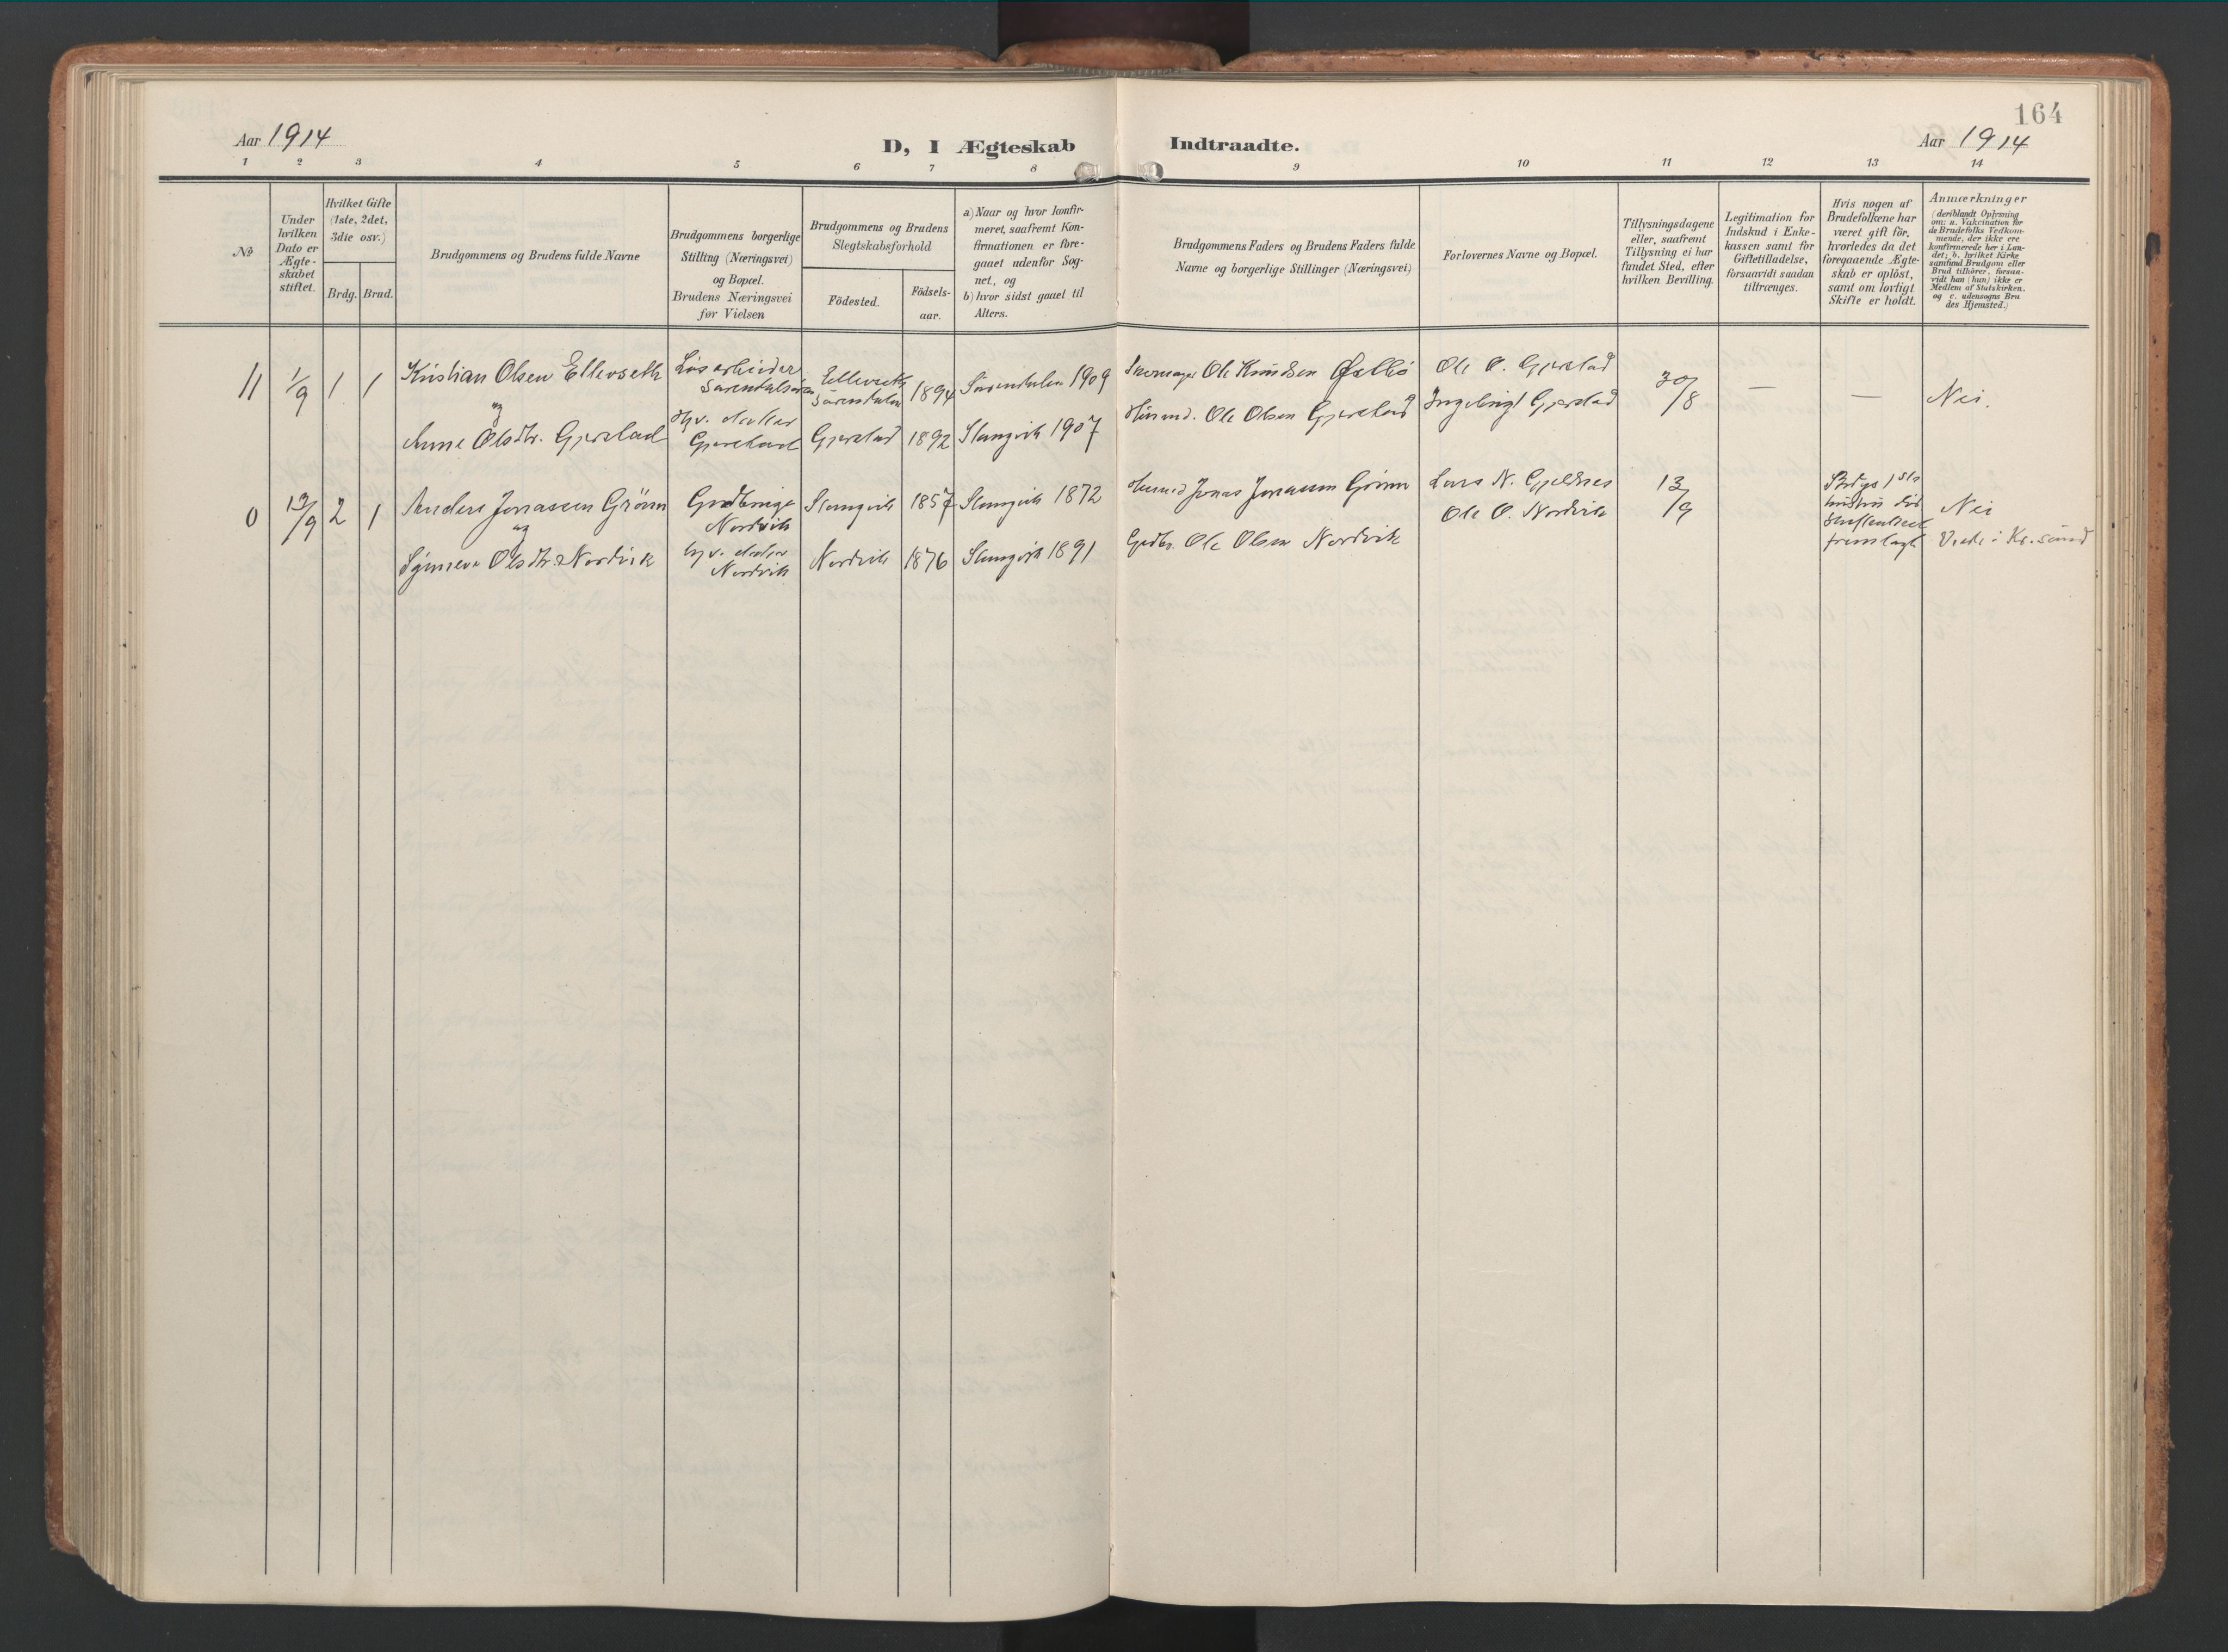 164
Aar 1914
D, I Ægteskab Indtraadte.
Aar 1914
1 2 3 4 5 6 7 8 9 10 11 12 13 14
№
Under hvilken Dato er Ægte-skabet stiftet.
Hvilket Gifte (1ste, 2det, 3die osv.)
Brdg. Brud.
Brudgommens og Brudens fulde Navne
Brudgommens borgerlige Stilling (Næringsvei) og Bopæl. Brudens Næringsvei før Vielsen
Brudgommens og Brudens Slegtskabsforhold
Födested. Födsels-aar.
a) Naar og hvor konfir-meret, saafremt Kon-firmationen er fore-gaaet udenfor Sog-net, og
b) hvor sidst gaaet til Alters.
Brudgommens Faders og Brudens Faders fulde Navne og borgerlige Stillinger (Næringsvei)
Forlovernes Navne og Bopæl.
Tillysningsdagene eller, saafremt Tillysning ei har fundet Sted, efter hvilken Bevilling.
Legitimation for Indskud i Enke-kassen samt for Giftetilladelse, forsaavidt saadan tiltrænges.
Hvis nogen af Brudefolkene har været gift för, hvorledes da det foregaaende Ægte-skab er oplöst, samt om lovligt Skifte er holdt.
Anmærkninger
(deriblandt Oplysning om: a. Vakcination for de Brudefolks Vedkom-mende, der ikke ere konfirmerede her i Lan-det; b. hvilket Kirke-samfund Brudgom eller Brud tilhører, forsaa-vidt han (hun) ikke er Medlem af Statskirken. og c. udensogns Bru des Hjemsted.)
11 1/9 1 1 Kristian Olsen Ellevseth
Løsarbeider
Ellevseth 1894 1909
Ole Knudsen
Ole O. Gjerstad
30/8 — — Nei.
og
Anne Olsdtr. Gjerstad
Gjerstad Gjerstad 1892 Stangvik 1907
Husmd. Ole Olsen Gjerstad
Ingebrigt Gjerstad
0 13/9 2 1 Anders Jonassen Grönn
Grdbruger
Nordvik
Stangvik 1857 Stangvik 1872
Husmd Jonas Jonassen Grönn
Lars N. Gjeldnes
Ole O. Nordvik
13/9
Brdgs 1ste
hustru död
Skifteattest
fremlagt
Nei
i Kr.sund
og
Synneva Olsdtr. Nordvik
Nordvik Nordvik 1876 Stangvik 1891
Grdbr. Ole Olsen Nordvik